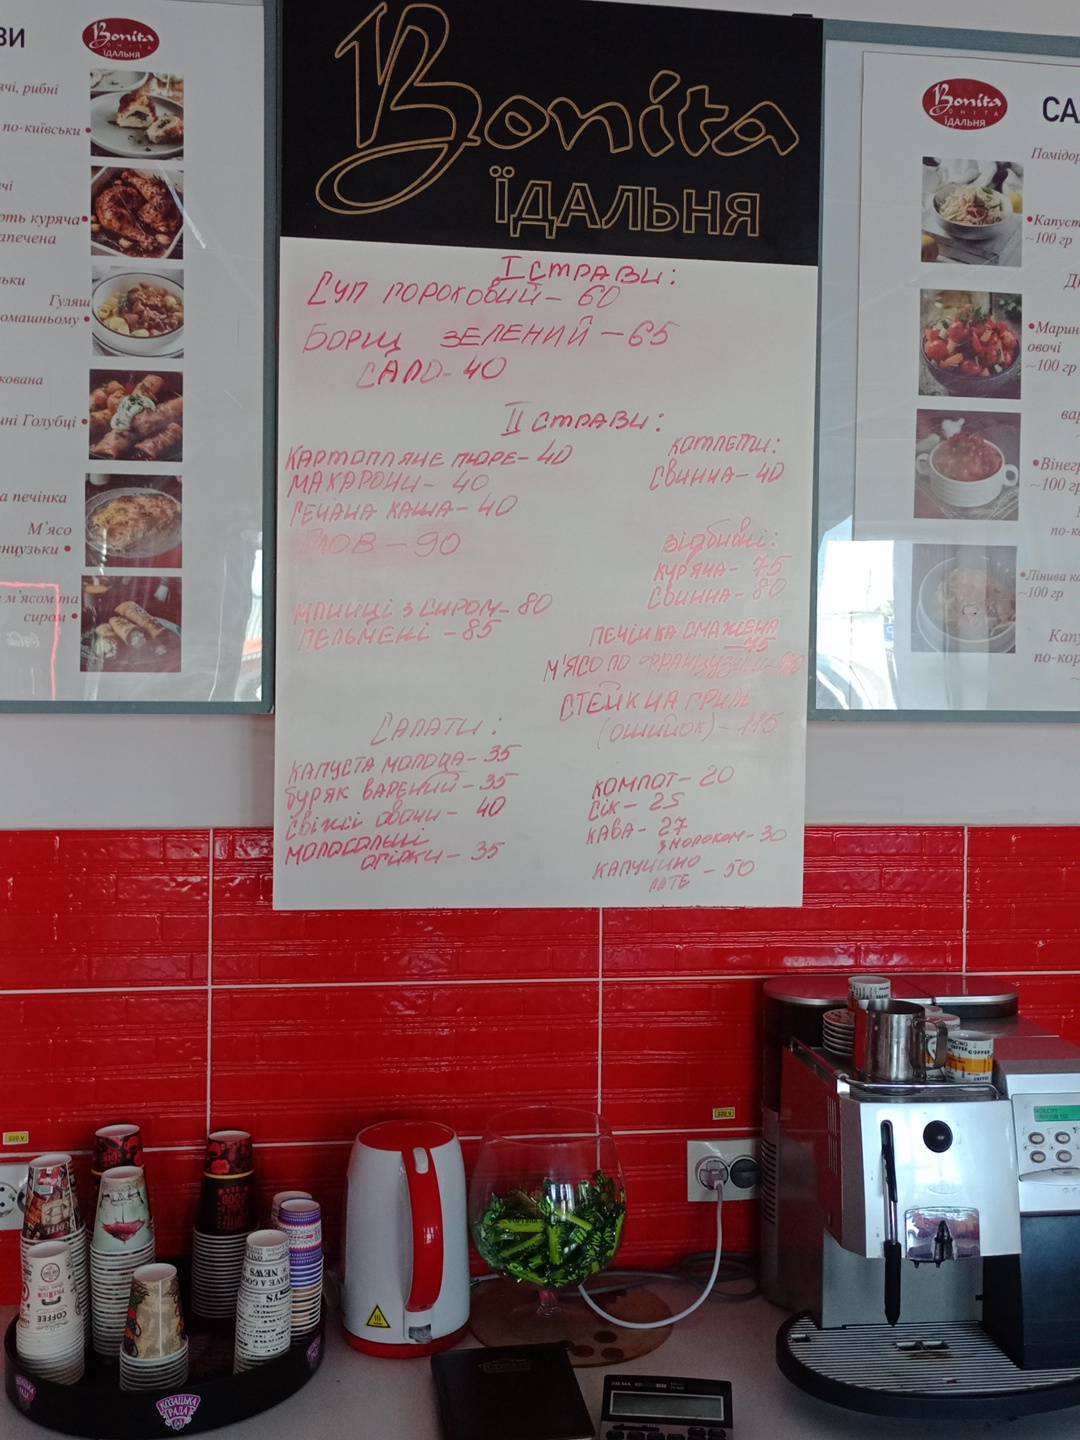 Bonita
ЇДАЛЬНЯ
І СТРАВИ:
СУП ГОРОХОВИЙ - 60
БОРЩ ЗЕЛЕНИЙ - 65
САЛО - 40
ІІ СТРАВИ:
КАРТОПЛЯНЕ ПЮРЕ - 40
МАКАРОНИ - 40
ГЕЧАНА КАША - 40
ПЛОВ - 90
МЛИНЦІ З СИРОМ - 80
ПЕЛЬМЕНІ - 85
КОТЛЕТИ:
СВИННА - 40
ВІДБИВНІ:
КУР'ЯНА - 75
СВИННА - 80
ПЕЧІНКА СМАЖЕНА
М'ЯСО ПО ФРАНЦУЗЬКИ
СТЕЙК НА ГРИЛЬ
(ОШИЙОК) - 115
САЛАТИ:
КАПУСТА МОЛОДА - 35
БУРЯК ВАРЕНИЙ - 35
СВІЖІ ОВОЧІ - 40
МОЛОСОЛЬНІ
ОГІРКИ - 35
КОМПОТ - 20
СІК - 25
КАВА - 27
З МОЛОКОМ - 30
КАПУЧИНО
ЛАТЕ - 50
Bonita
ЇДАЛЬНЯ
рибні
по-київськи •
куряча •
апечена
Гуляш
омашньому •
Голубці •
печінка
М'ясо
м'ясом та
сиром •
Bonita
BONITA
ЇДАЛЬНЯ
СА
•Капуст
~100 гр
•Марин
овочі
~100 гр
•Вінегр
~100 гр
•Лінива
~100 гр
по-кор
КОЗАЦЬКА
РАДА
COFFEE
NEWS